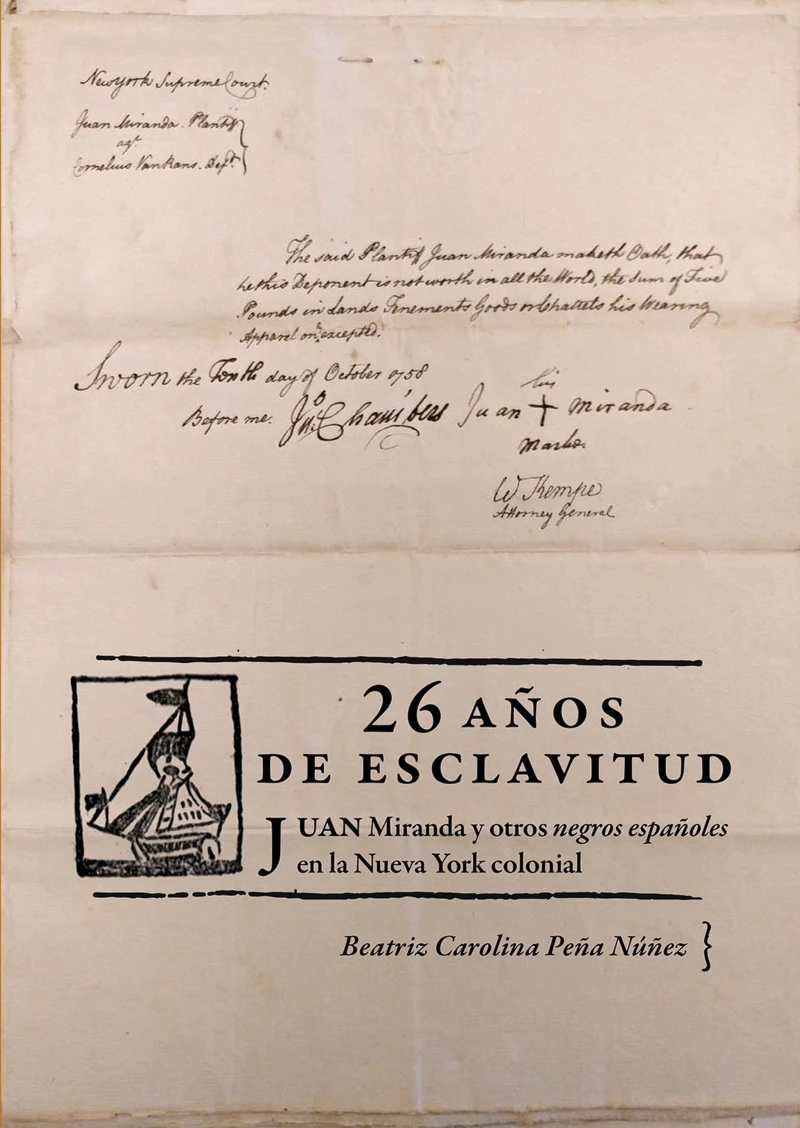 New York Supreme Court.
Juan Miranda. Plantiff
agt.
Cornelius VanRans. Deft.
The said Plantiff Juan Miranda maketh Oath, that
he this Deponent is not worth in all the World, the Sum of Five
Pounds in Lands Tenements Goods or Chattels his Wearing
Apparel only excepted.
Sworn the Tenth day of October 1758
Before me. Jno. Chambers
his
Juan + Miranda
Marke.
W Kempe
Attorney General
26 AÑOS
DE ESCLAVITUD
JUAN Miranda y otros negros españoles
en la Nueva York colonial
Beatriz Carolina Peña Núñez }